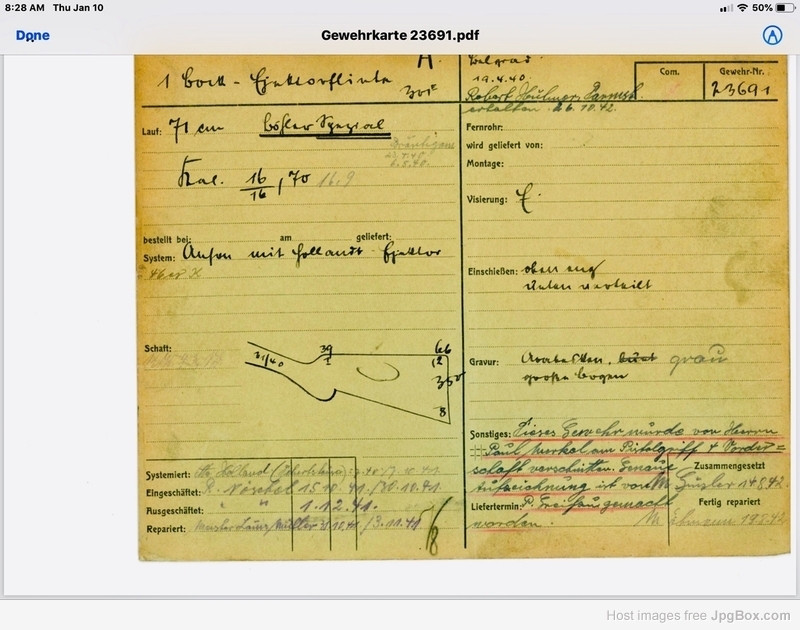 8:28 AM Thu Jan 10
50%
Done
Gewehrkarte 23691.pdf
1 Bock - Ejektorflinte
Belgrad
19.4.40.
Robert Hübner,
erhalten 26.10.42.
Com.
Gewehr-Nr.
23691
Lauf: 71 cm Böhler Spezial
Kal. 16/16, 70 16.9
bestellt bei: am geliefert:
System: Anson mit Holland Ejektor
Fernrohr:
wird geliefert von:
Montage:
Visierung:
Einschießen: oben eng
unten verteilt
Schaft:
31/40
39
66
8
Gravur: Arabesken, bunt grau
große bogen
Sonstiges: Dieses Gewehr wurde von Herrn
Paul Merkel am Pistolgriff + Vorder=
schaft verschnitten. Genaue
Aufzeichnung ist von
gemacht
worden.
Zusammengesetzt
14.8.42.
Liefertermin:
Fertig repariert
19.8.42
Systemiert: Holland
Eingeschäftet: R. Nöschel 15.10.41. /30.10.41.
Ausgeschäftet: " " 1.12.41.
Repariert: Müller /3.11.41.
Host images free JpgBox.com